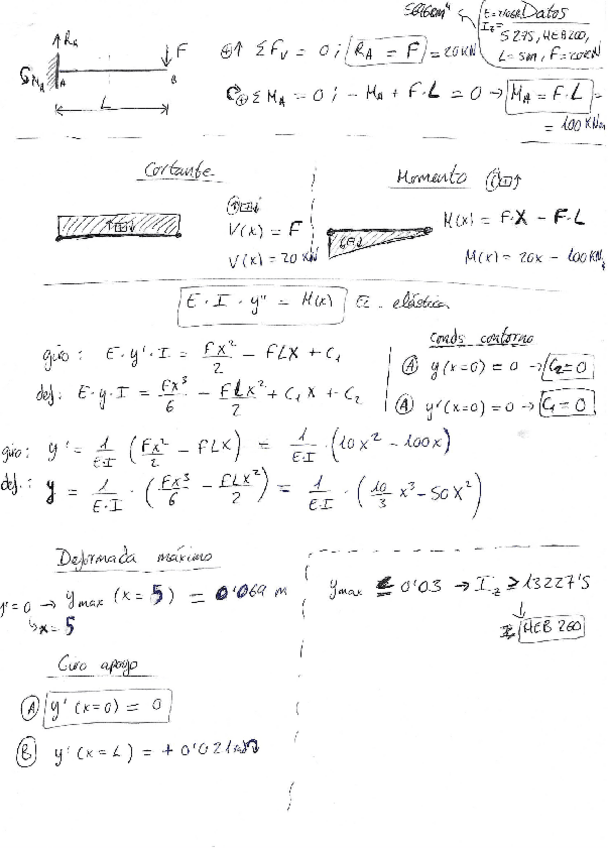 5696cm⁴
E=210GPa Datos
I_z=
S 275, HEB200,
L=5m, F=20KN
↑R_A
↓F
M_A A B
L
⊕↑ ΣF_V = 0; R_A = F = 20KN
⊕ ΣM_A = 0; - M_A + F·L = 0 → M_A = F·L =
= 100 KNm
Cortante
V(x) = F
V(x) = 20 KN
Momento
M(x) = F·X - F·L
M(x) = 20x - 100KN
E·I·y'' = M(x) Ec. elástica
giro: E·y'·I = Fx²/2 - FLX + C₁
def: E·y·I = Fx³/6 - FLx²/2 + C₁X + C₂
conds contorno
Ⓐ y(x=0) = 0 → C₂=0
Ⓐ y'(x=0) = 0 → C₁=0
giro: y' = 1/E·I (Fx²/2 - FLX) = 1/E·I · (10x² - 100x)
def.: y = 1/E·I · (Fx³/6 - FLx²/2) = 1/E·I · (10/3 x³ - 50X²)
Deformada máximo
y'=0 → y_max (x=5) = 0'069 m
↳x=5
Giro apoyo
Ⓐ y'(x=0) = 0
Ⓑ y'(x=L) = +0'021
y_max ≤ 0'03 → I_z ≥ 13227'5
↓
HEB 260